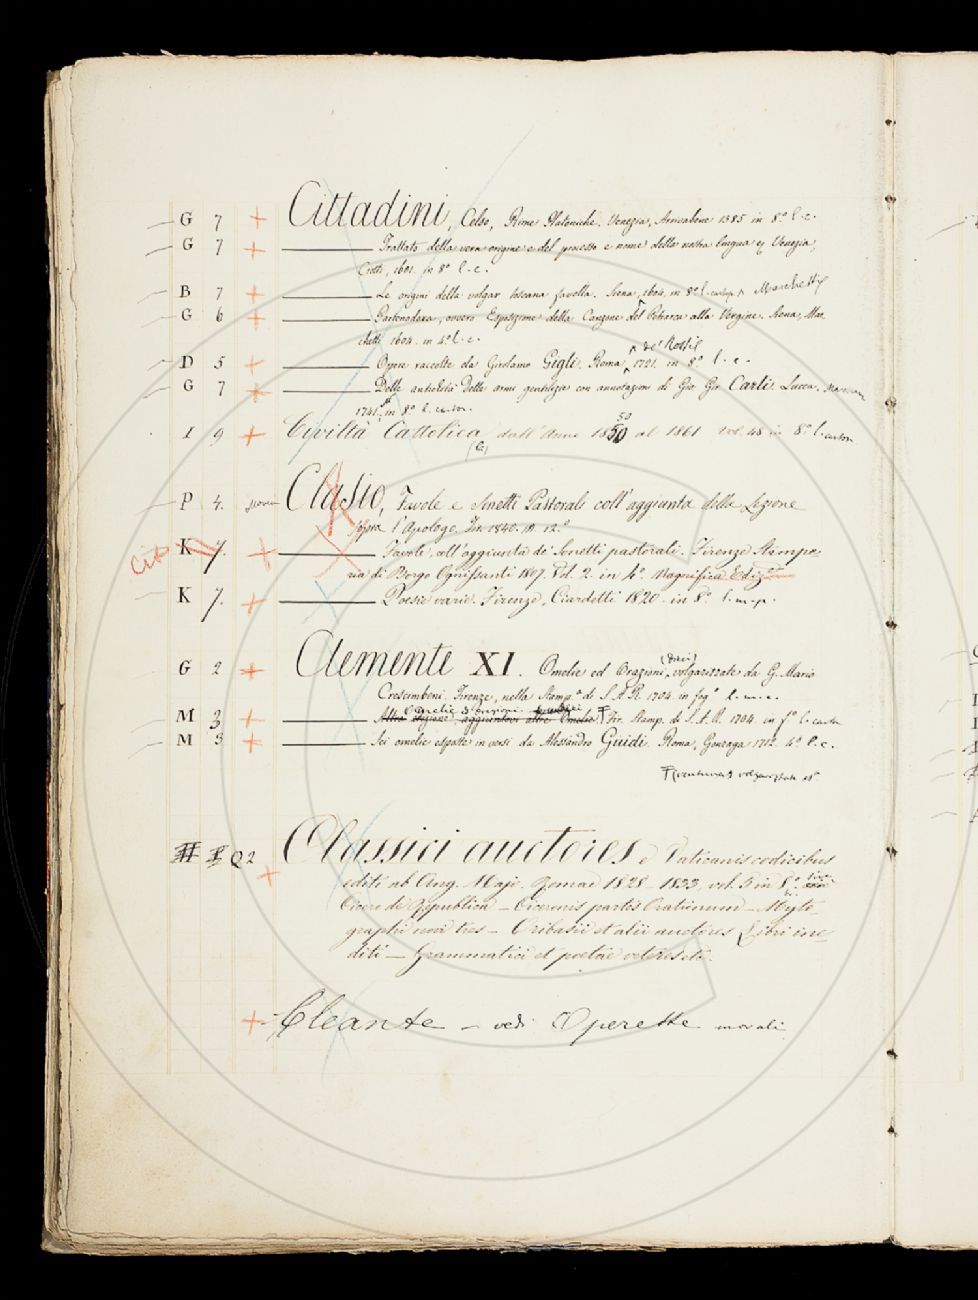 G 7 + Cittadini, Celso, Rime Platoniche. Venezia, Arrivabene 1585 in 8.º l. c.
G 7 + Trattato della vera origine e del processo e nome della nostra lingua Venezia,
Ciotti, 1601. in 8º l. c.
B 7 + Le origini della volgar toscana favella. Siena, 1604. in 8º l. carton. Marchetti
G 6 + Partenodoxa, ovvero Esposizione della Canzone del Petrarca alla Vergine. Siena, Mar
chetti 1604. in 4º l. c.
de' Rossi
D 5 + Opere raccolte da Girolamo Gigli. Roma, 1721. in 8º l. c.
G 7 + Delle antichità delle armi gentilizie con annotazioni di Gio Gir. Carli. Lucca.
1741. in 8º l. carton.
50
I 9 + Civiltà Cattolica dall'Anno 1850 al 1861 vol. 48 in 8.º l. carton
(La)
P 4. Clasio, Favole e Sonetti Pastorali coll'aggiunta della Lezione
sopra l'Apologo. Fir. 1840. in 12.º
Cit K 7. + Favole, coll'aggiunta de' Sonetti pastorali. Firenze Stampe
ria di Borgo Ognissanti 1807. Vol. 2. in 4º. Magnifica Edizione
K 7. + Poesie varie. Firenze, Ciardetti 1820. in 8º. l. m. p.
(Dieci)
G 2 + Clemente XI. Omelie ed Orazioni, volgarizzate da G. Mario
Crescimbeni. Firenze, nella Stamp.ª di S.A.R. 1704. in fogº l. m. c.
Omelie
M 3 + Altra edizione, aggiuntovi altre Omelie Fir. Stamp. di S.A.R. 1704. in fº l. carton
M 3 + Sei omelie esposte in versi da Alessandro Guidi. Roma, Gonzaga 1712. 4º l. c.
Q 2 Classici auctores e Vaticanis codicibus
+ editi ab Ang. Majo. Romae 1828 - 1833. vol. 5 in 8.º
Cicero de Republica - Ciceronis partes Orationum - Myto
graphi novi tres - Oribasii et alii auctores Libri ine
diti - Grammatici et poetae veteres etc.
+ Cleante - vedi Operette morali